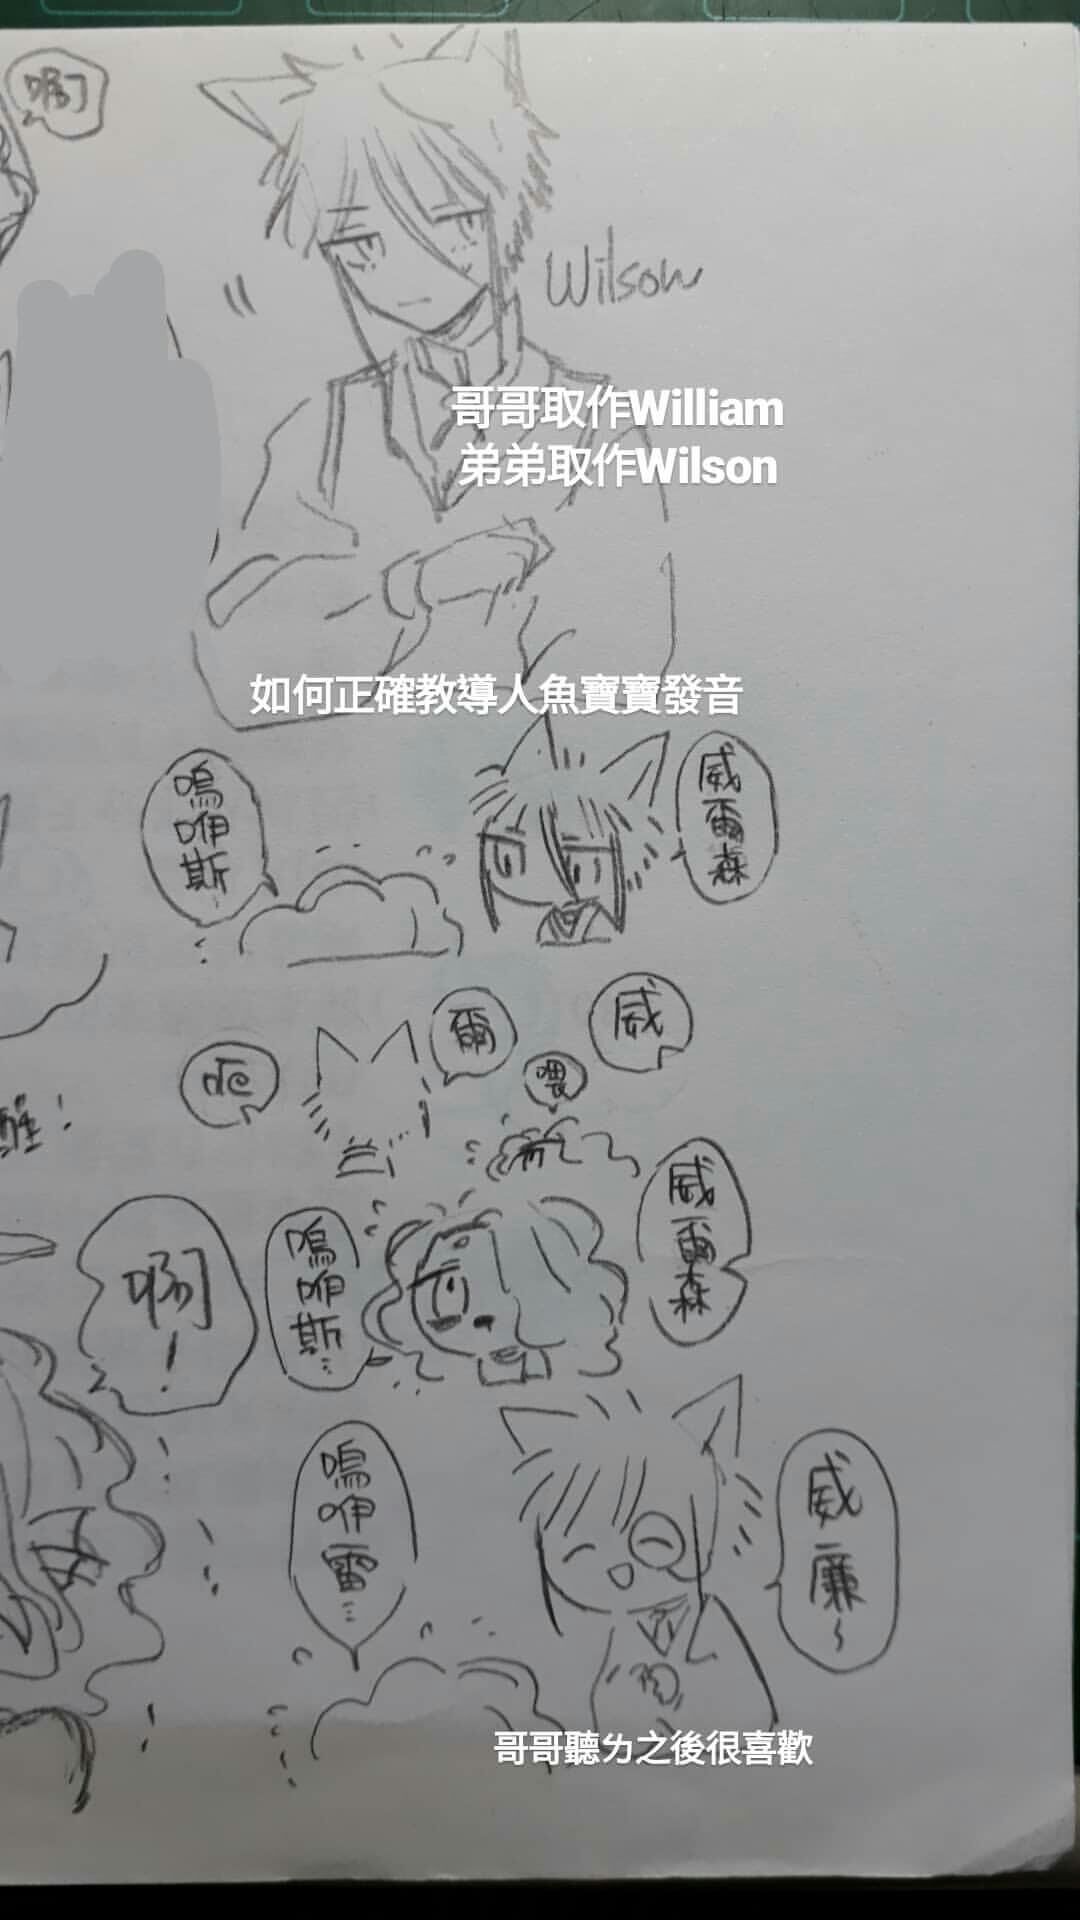 啊
Wilson
哥哥取作William
弟弟取作Wilson
如何正確教導人魚寶寶發音
威爾森
嗚咿斯
威
喂
爾
呃
醒！
威爾森
嗚咿斯…
啊！
威廉～
嗚咿雷…
哥哥聽ㄌ之後很喜歡